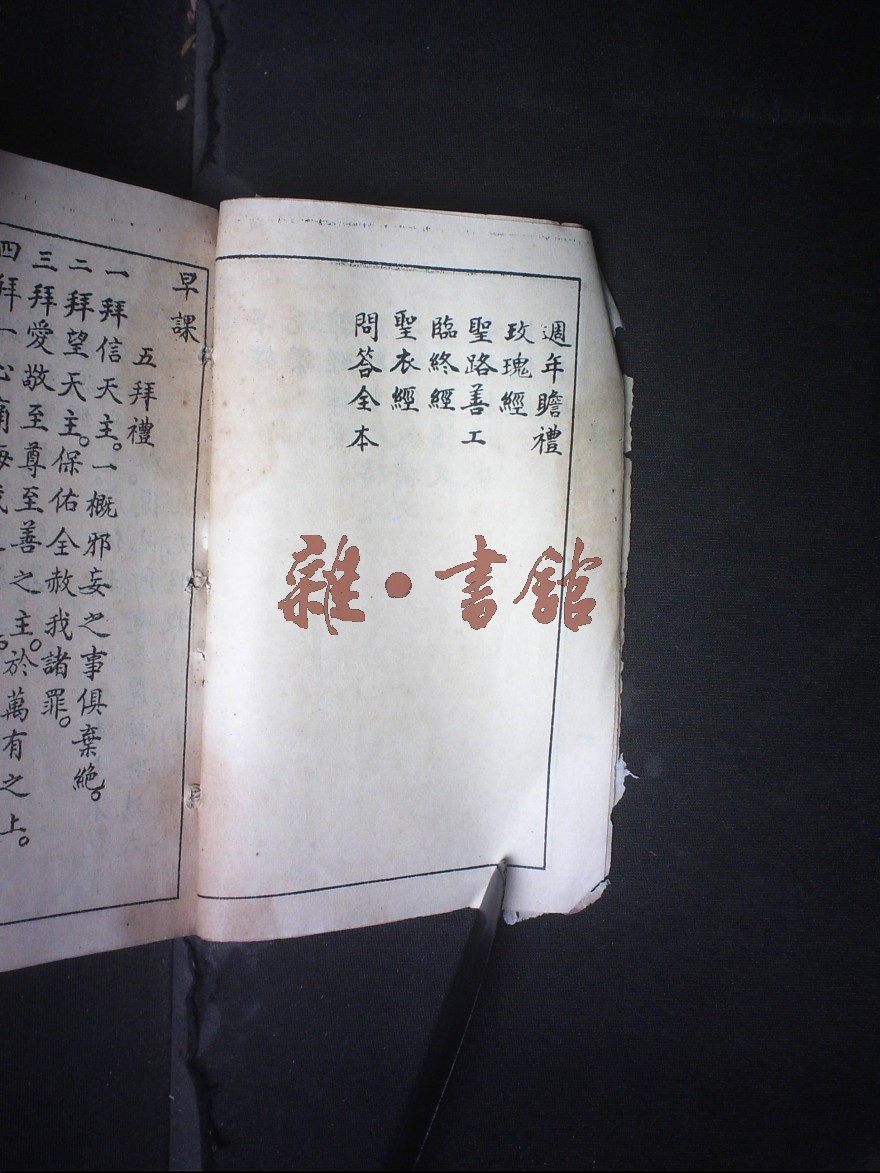 週年瞻禮
玫瑰經
聖路善工
臨終經
聖衣經
問答全本
早課
五拜禮
一拜信天主。一概邪妄之事俱棄絶。
二拜望天主。保佑全赦我諸罪。
三拜愛敬至尊至善之主。於萬有之上。
四拜一心痛悔
雜·書館